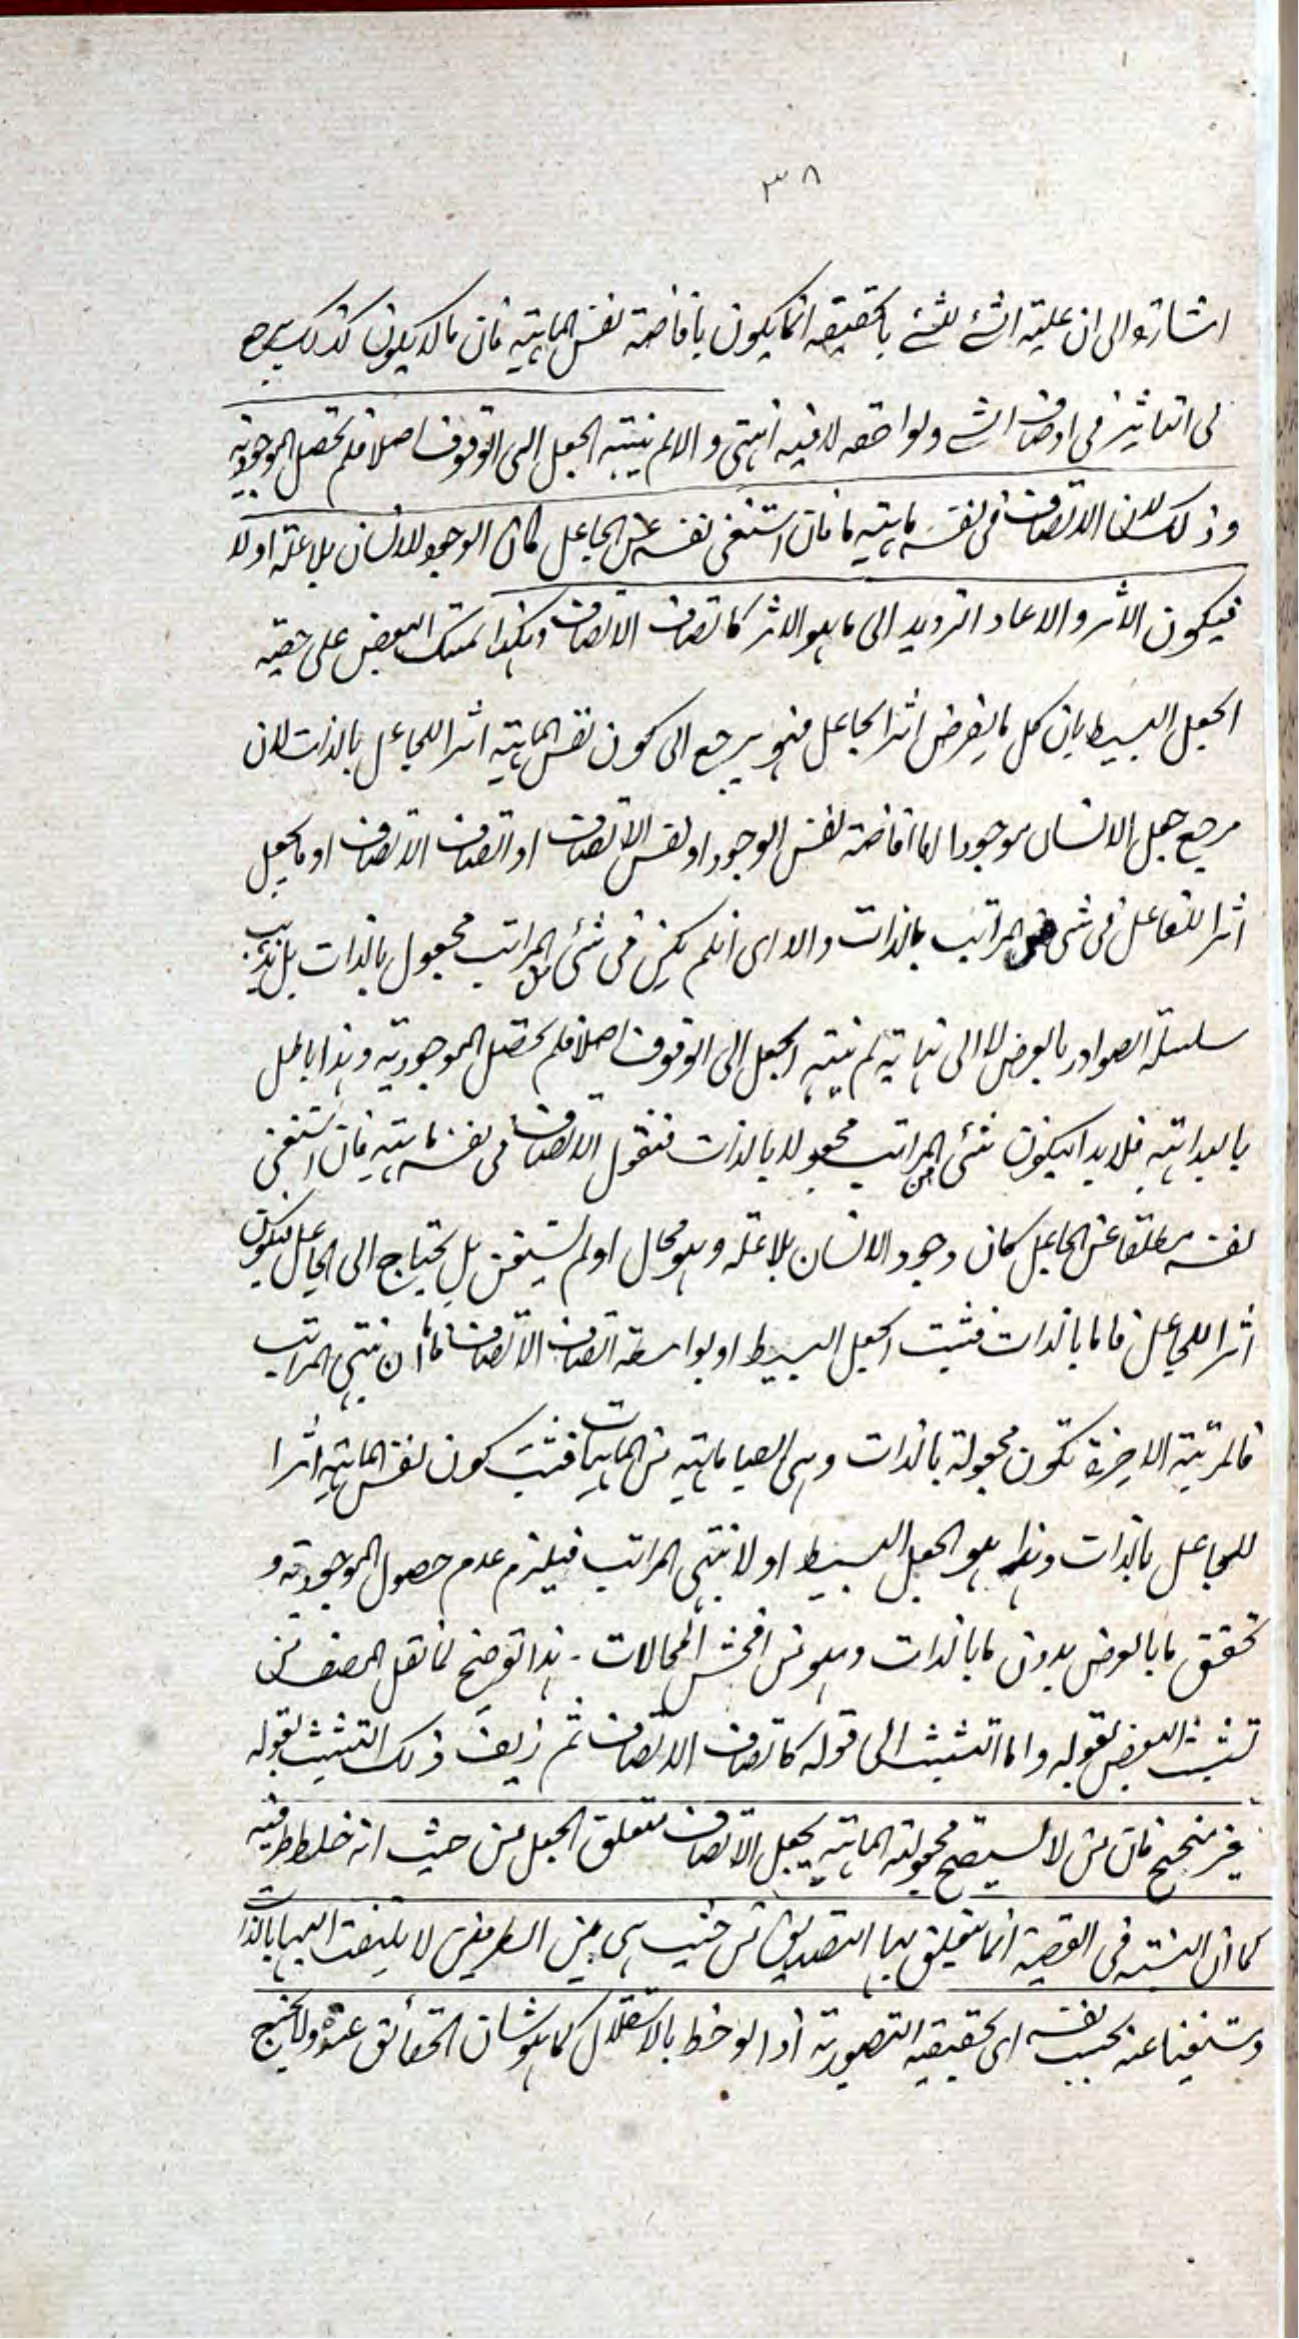 ٣٨
اشارة الى ان علية الشئ لشئ بالحقيقة انما يكون بافاضة نفس الماهية فان ما لا يكون كذلك يرجع
الى التاثير فى اوصاف الشئ ولواحقه لا فيه انتهى والا لم ينته الجعل الى الوقوف اصلا فلم تحصل الموجودية
وذلك لان الاتصاف فى نفسه ماهية ما فان استغنى نفسه عن الجاعل كان الوجود للانسان بلا علة او لا
فيكون الاثر والا عاد الترديد الى ما هو الاثر كاتصاف الاتصاف وبهذا تمسك البعض على حقية
الجعل البسيط بان كل ما يفرض اثر الجاعل فهو يرجع الى كون نفس الماهية اثرا للجاعل بالذات لان
مرجع جعل الانسان موجودا اما افاضة نفس الوجود او نفس الاتصاف او اتصاف الاتصاف او ما يجعل
اثرا للفاعل فى شئ من المراتب بالذات والا اى ان لم يكن فى شئ من المراتب مجعول بالذات بل يذهب
سلسلة الصوادر بالعرض لا الى نهاية لم ينته الجعل الى الوقوف اصلا فلم تحصل الموجودية وهذا باطل
بالبداهة فلا بد ان يكون شئ من المراتب مجعولا بالذات فنقول الاتصاف فى نفسه ماهية فان استغنى
نفسه مطلقا عن الجاعل كان وجود الانسان بلا علة وهو محال او لم يستغن بل يحتاج الى الجاعل فيكون
اثرا للجاعل فاما بالذات فثبت الجعل البسيط او بواسطة اتصاف الاتصاف فاما ان ينتهى المراتب
فالمرتبة الاخيرة تكون مجعولة بالذات وهى ايضا ماهية من الماهيات فثبت كون نفس الماهية اثرا
للجاعل بالذات وهذا هو الجعل البسيط او لا ينتهى المراتب فيلزم عدم حصول الموجودية و
تحقق ما بالعرض بدون ما بالذات وهو من افحش المحالات ـ هذا توضيح لما نقل المصنف من
تشبث البعض بقوله واما التشبث الى قوله كاتصاف الاتصاف ثم زيف ذلك التشبث بقوله
غير منجح فان من لا يستصح مجعولية الماهية يجعل الاتصاف متعلق الجعل من حيث انه خلط طرفيه
كما ان النسبة فى القضية انما يتعلق بها التصديق من حيث هى بين الطرفين لا يلتفت اليها بالذات
ومستغنيا عنه بحسب نفسه اى حقيقته التصورية اذا لوحظ بالاستقلال كما هو شان الحقائق عنده ولا يحتج